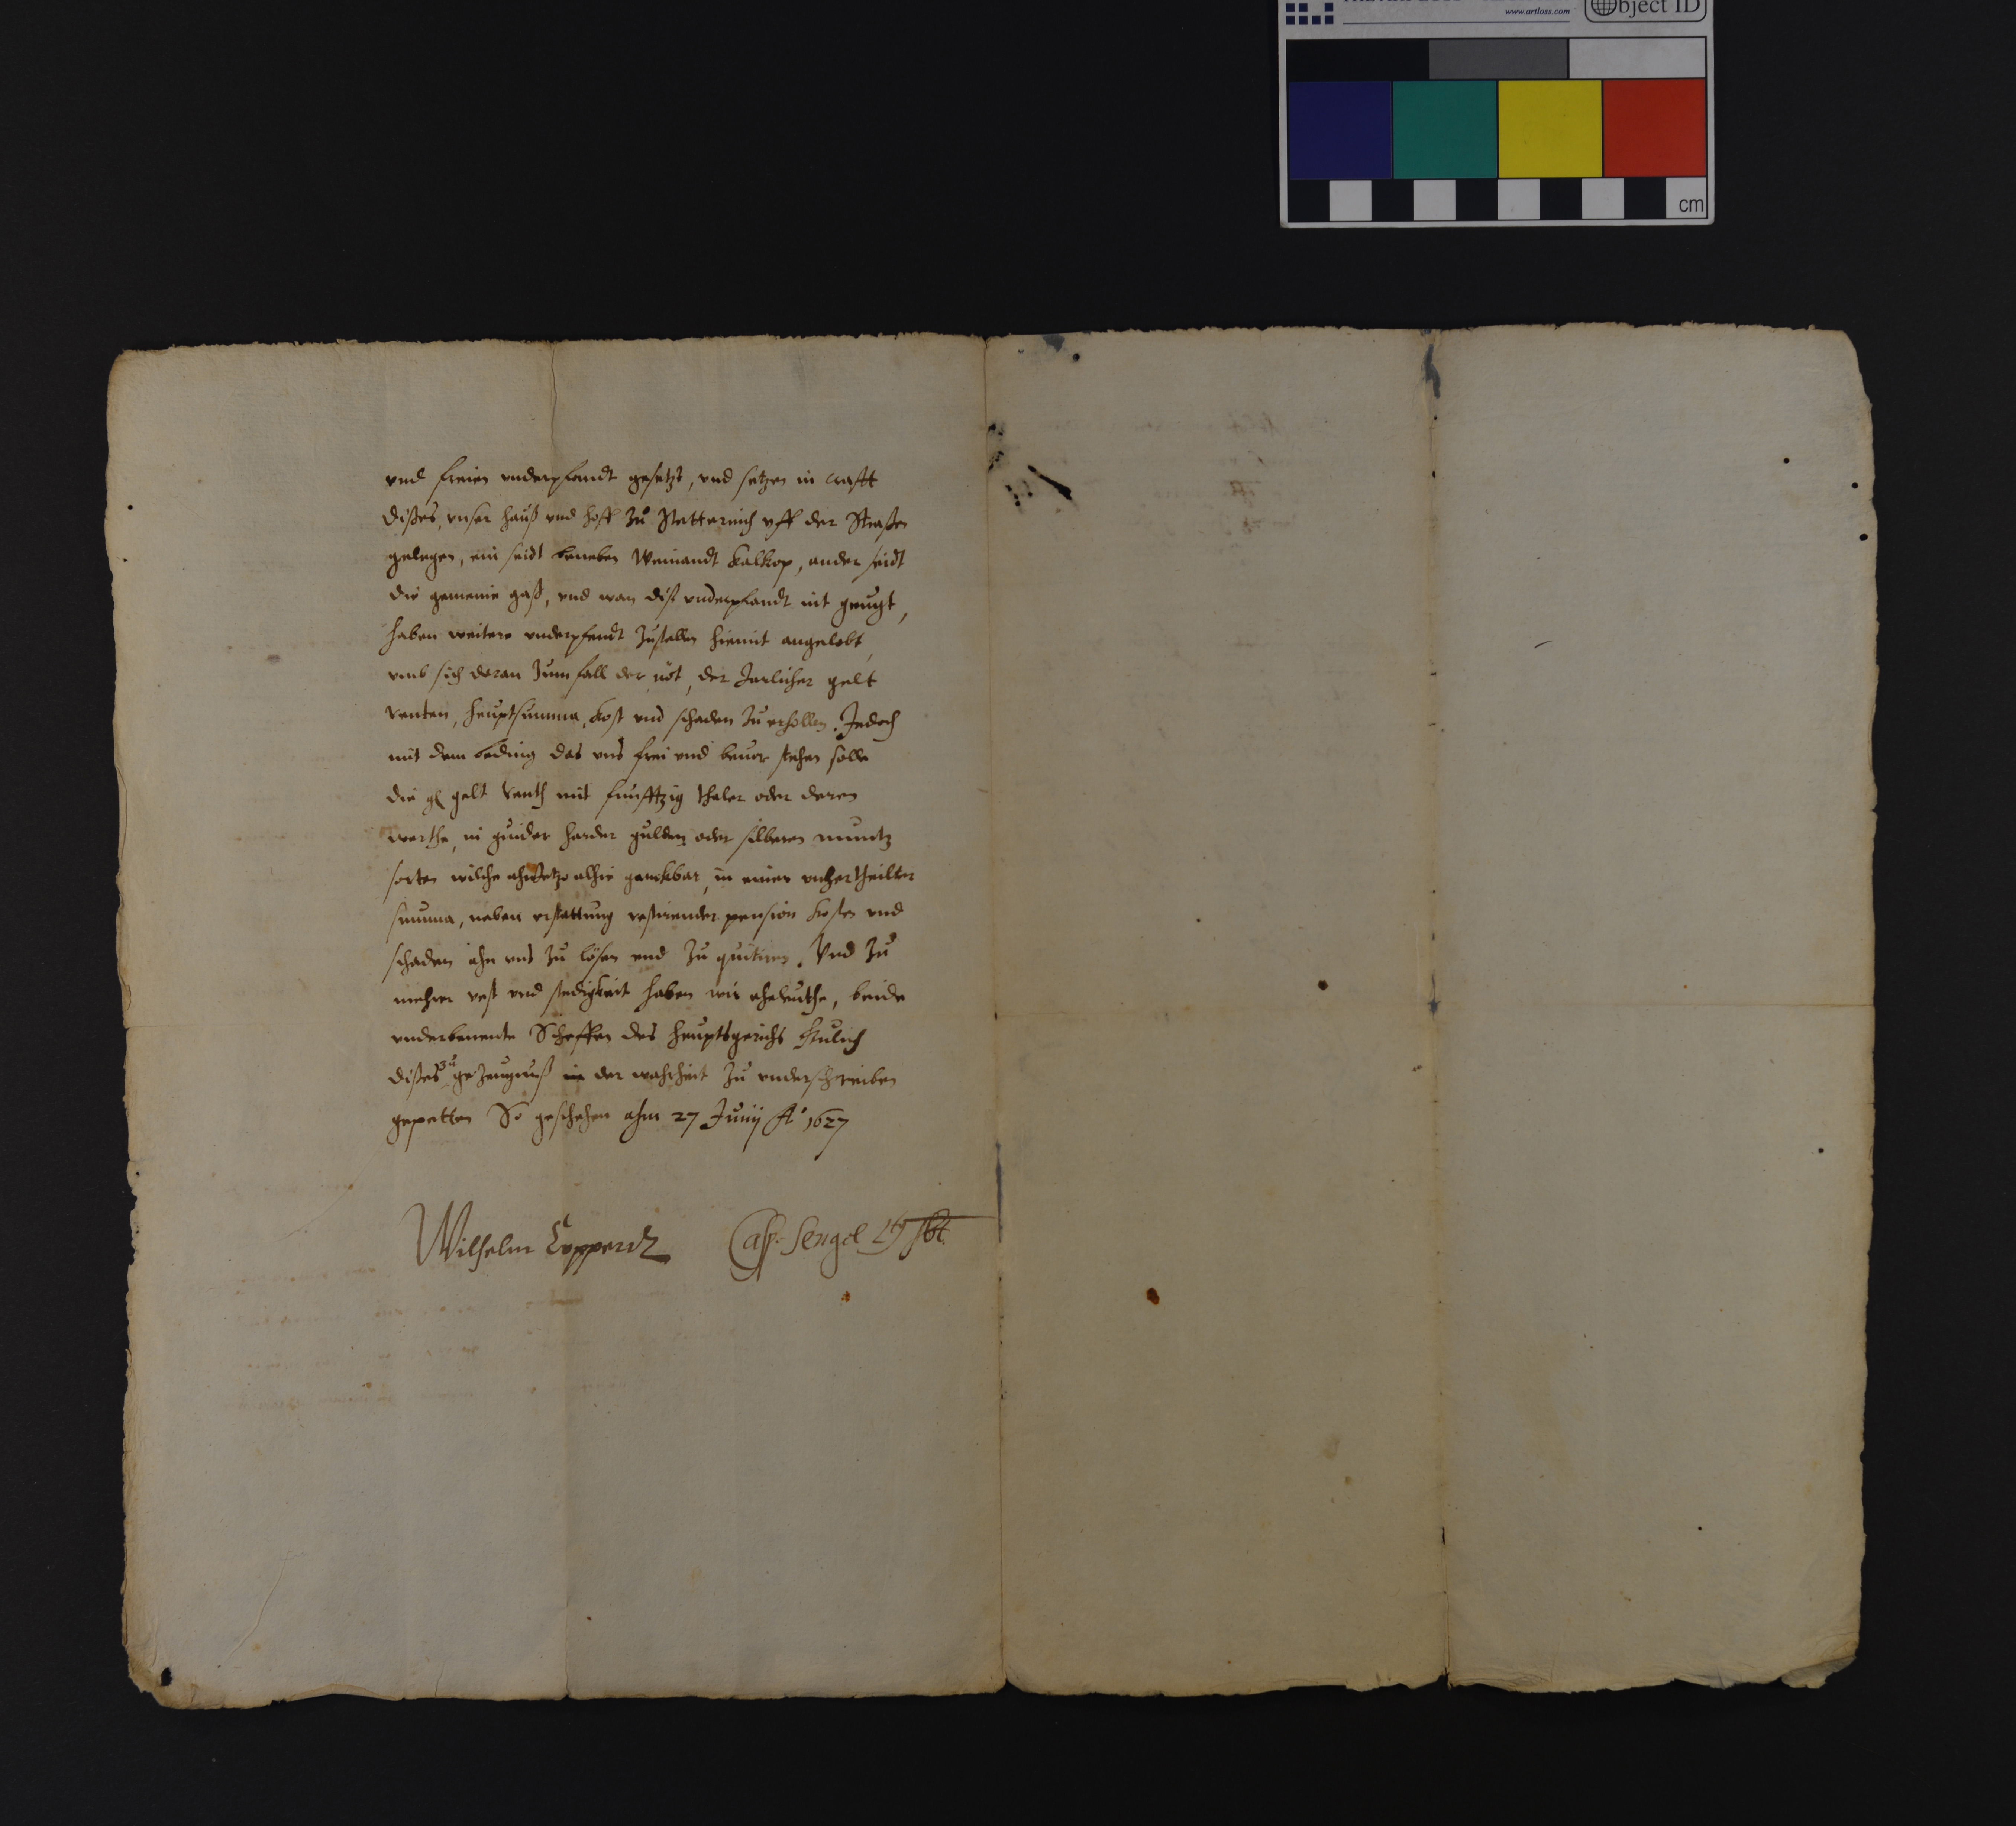 www.artloss.com
bject ID
cm
vnd freien vnderpfandt gesetzt, vnd setzen in crafft
dißes, vnser hauß vnd hoff zu Stetternich vff der Straßen
gelegen, ein seidt beneben Weinandt Kalkop, ander seidt
die gemeine gaß, vnd wan diß vnderpfandt nit gnugt,
haben weitere vnderpfendt zustellen hiemit angelobt,
vmb sich daran zum fall der not, der Jarlicher gelt
renten, heuptsumma, kost vnd schaden zu erhollen. Jedoch
mit dem beding das vns frei vnd beuor stehen solle
die gelt renth mit funfftzig thaler oder deren
werthe, in guider harder gulden oder silberen muntz
sorten wilche alhie ganckbar, in einer vnzertheilter
summa, neben erstattung restirender pension kosten vnd
schaden ahn vns zu lösen vnd zu quitiren. Vnd zu
mehrer vest vnd stedigkeit haben wir eheleuthe, beide
vnderbenente Scheffen des heuptsgerichts Gulich
dißes zu gezeugnuß der wahrheit zu vnderschreiben
gepetten So geschehen ahm 27 Junij Ao 1627
Wilhelm Coppertz Casp. Sengel